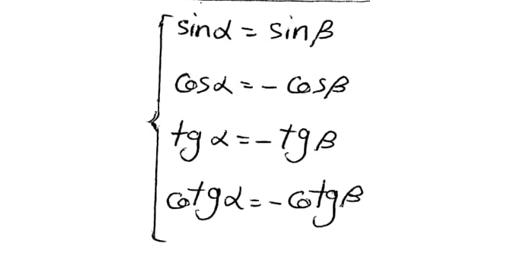 sinα = sinβ
cosα = - cosβ
tgα = - tgβ
cotgα = - cotgβ